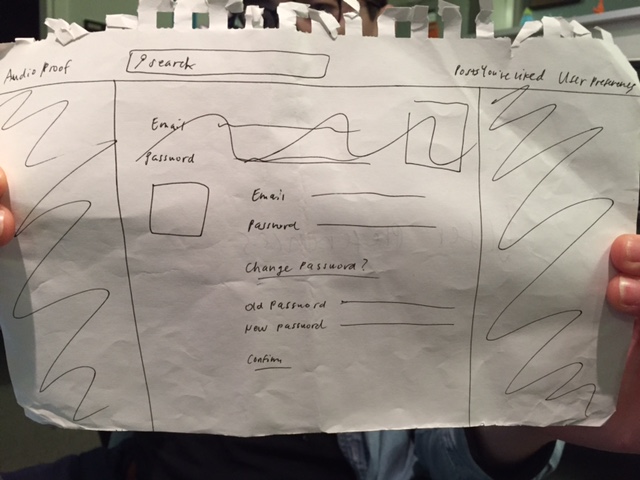 Audio Proof
search
Posts You've Liked
User Preferences
Email
Password
Email
Password
Change Password?
Old Password
New Password
Confirm